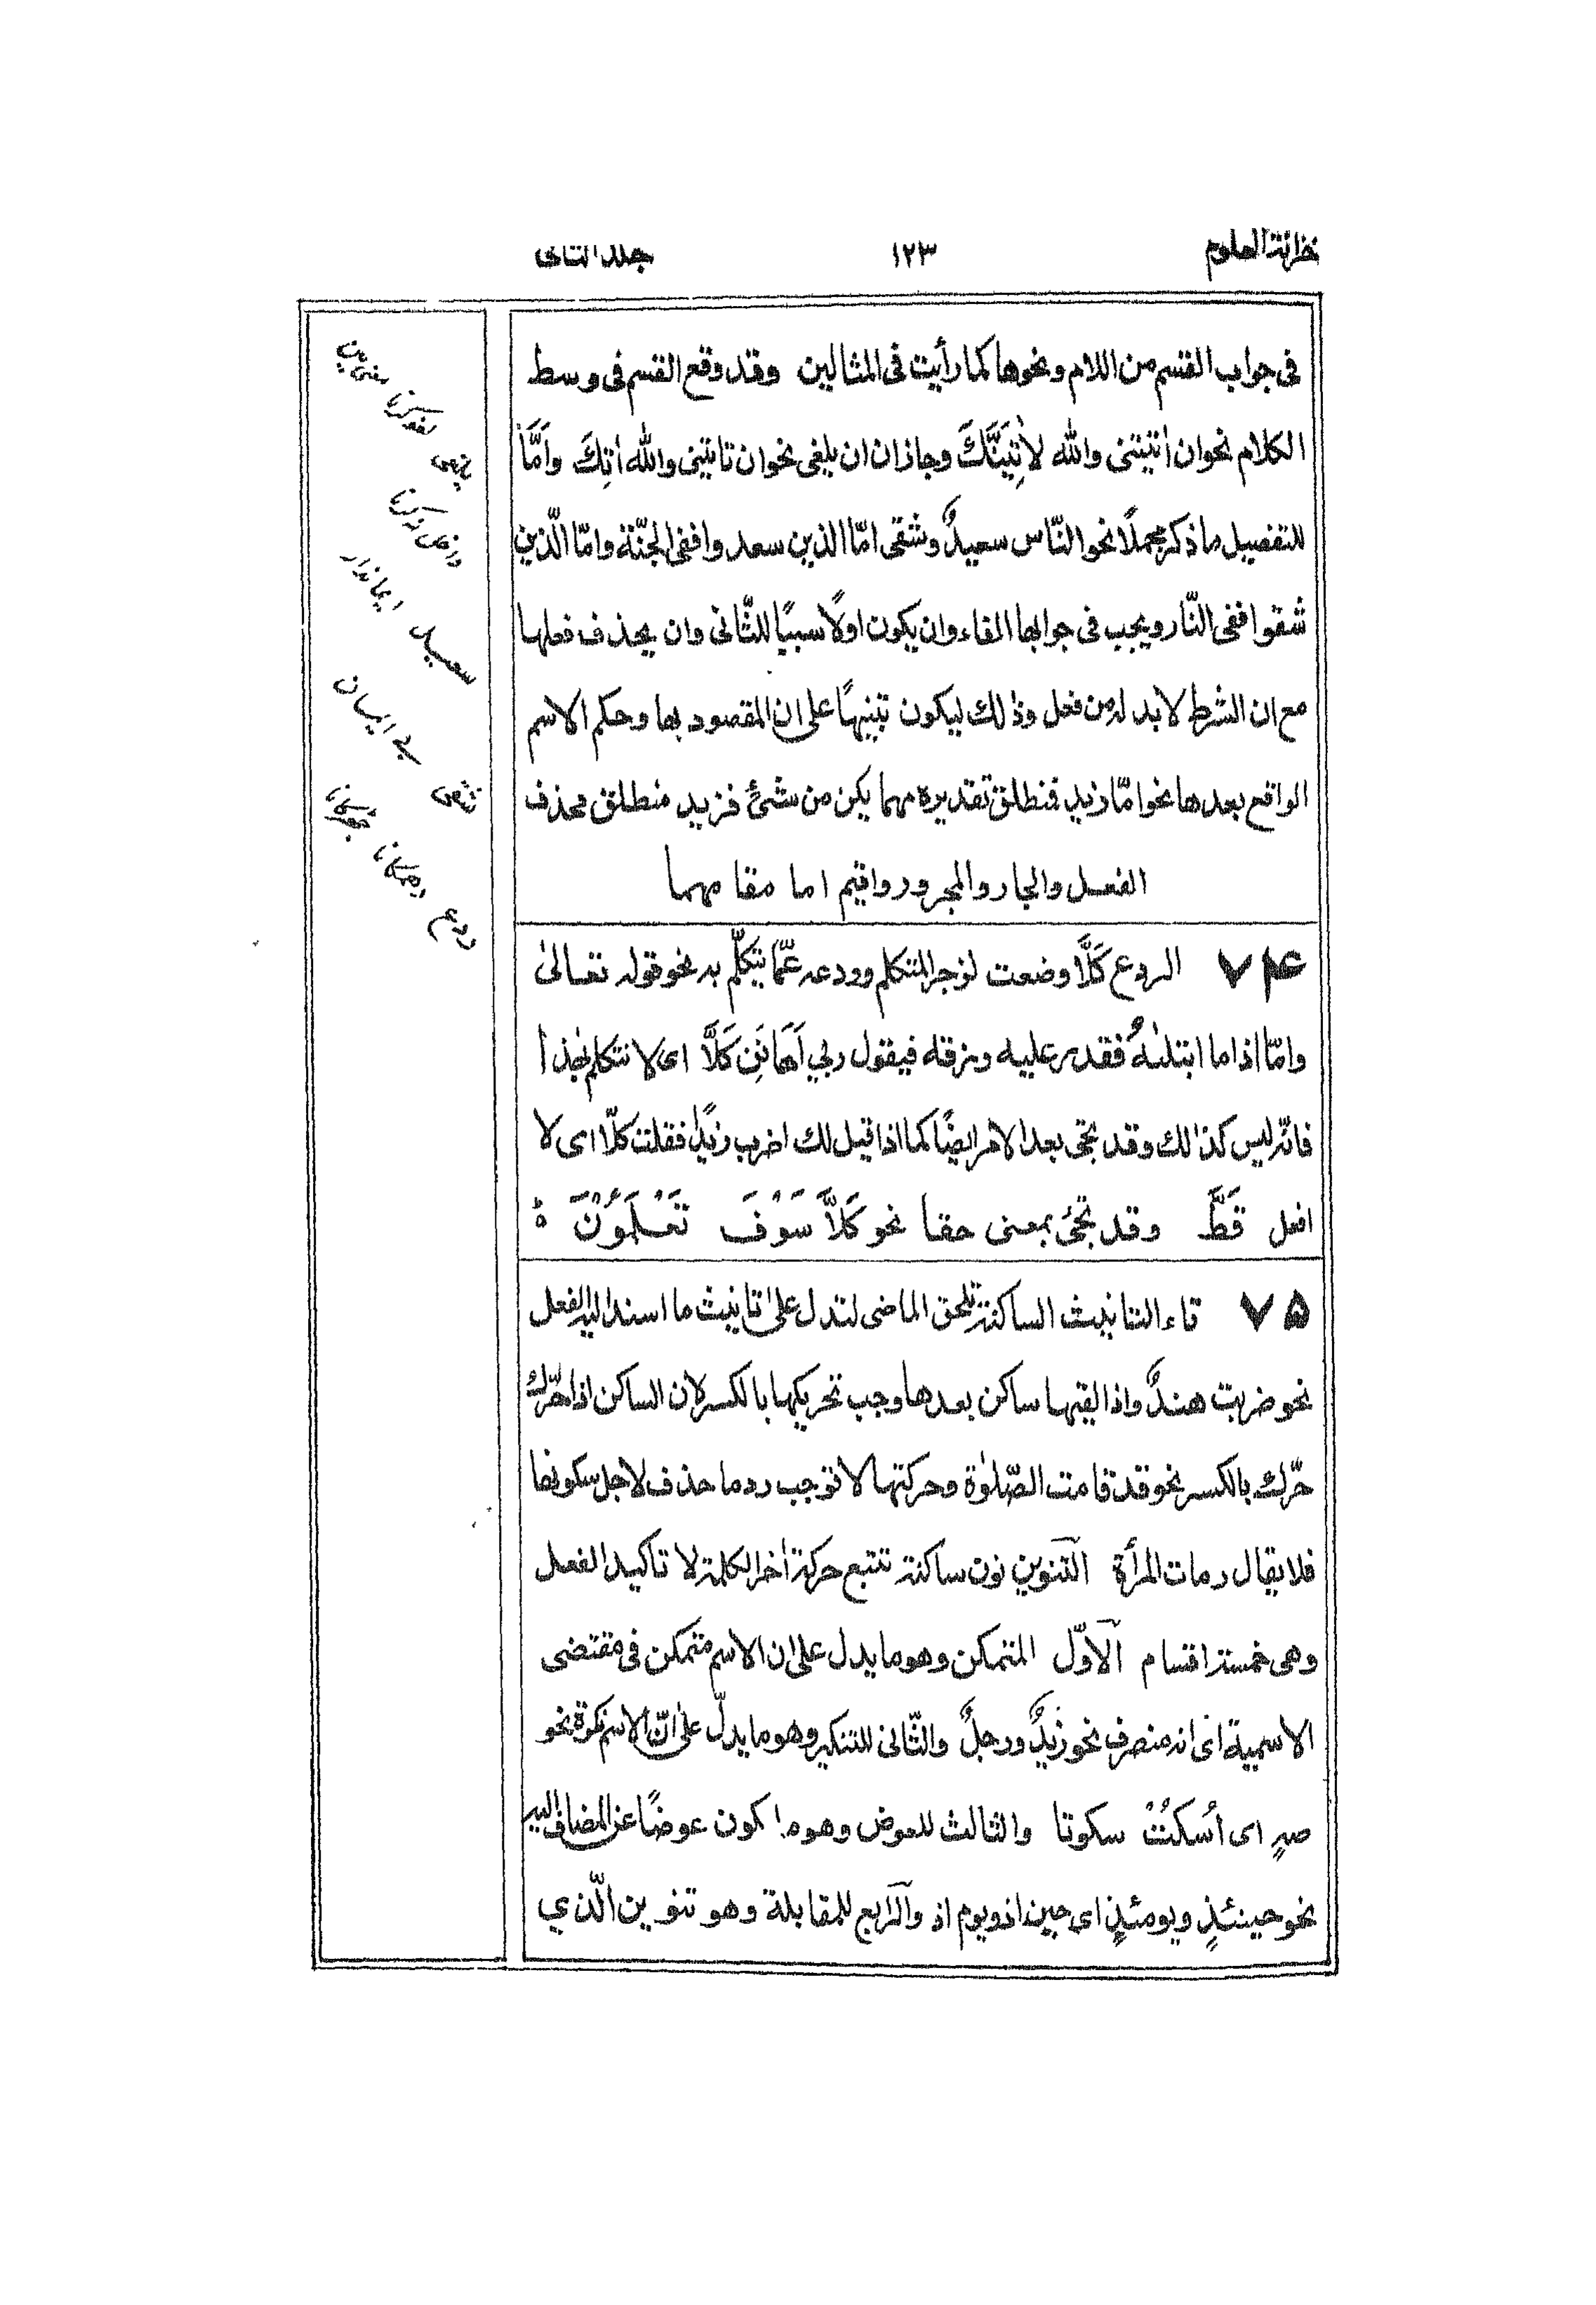 خزانۃ العلوم ۱۲۳ جلد الثانی
فی جواب القسم من اللام ونحوها کما رأیت فی المثالین وقد وقع القسم فی وسط
الکلام نحو ان أتیتنی والله لأٰتِیَنَّکَ وجاز ان ان یلغی نحو ان تاتینی والله اٰتِکَ وَاَمَّا
للتفصیل ما ذکر مجملًا نحو النّاس سعیدٌ وشقی امّا الذین سعدوا ففی الجنّة وامّا الّذین
شقوا ففی النّار ویجب فی جوابها الفاء وان یکون اولًا سببیًا للثّانی وان یحذف فعلها
مع ان الشرط لا بد له من فعل وذٰلك لیکون تنبیهًا علی ان المقصود بها وحکم الاسم
الواقع بعدها نحو امّا زید فنطلق تقدیره مهما یکن من شئٍ فزید منطلق فحذف
الفعل والجار والمجرور واقیم اما مقا مهما
۷۴ الردع کَلَّا وضعت لزجر المتکلم وردعه عمّا یتکلّم به نحو قوله تعالیٰ
وامّا اذا ما ابتلٰىهُ فقدر علیه رزقه فیقول ربی اَهَانَنِ کَلَّا ای لا نتکلم بهٰذا
فانّه لیس کذٰلك وقد تجئ بعد الامر ایضًا کما اذا قیل لك اضرب زیدًا فقلت کلّا ای لا
افعل قَطَّ وقد تجئ بمعنی حقا نحو کَلَّا سَوْفَ تَعْلَمُوْنَ ۃ
۷۵ تاء التانیث الساکنة تلحق الماضی لتدل علیٰ تانیث ما اسند الیه الفعل
نحو ضربت هندٌ واذا لقیها ساکن بعدها وجب تحریکها بالکسر لان الساکن اذا حُرّك
حرّك بالکسر نحو قد قامت الصّلوٰة وحرکتها لا توجب رد ما حذف لاجل سکونها
فلا یقال رمات المرأة التّنوین نون ساکنة تتبع حرکة اٰخر الکلمة لا تاکید الفعل
وهی خمسة اقسام الاوّل المتمکن وهو ما یدل علیٰ ان الاسم متمکن فی مقتضی
الاسمیة ای انه منصرف نحو زیدٌ ورجلٌ والثّانی للتنکیر وهو ما یدلّ علیٰ انّ الاسم نکرة نحو
صهٍ ای اُسْکُتْ سکوتا والثالث للعوض وهو ما کون عوضًا عن المضاف الیه
نحو حینئذٍ ویومئذٍ ای حین اذ ویوم اذ والرّابع للمقابلة وهو تنوین الّذی
یلغی لغو کرنا
سعید ایماندار
شقی بے ایمان
ردع دھمکانا جھڑکنا